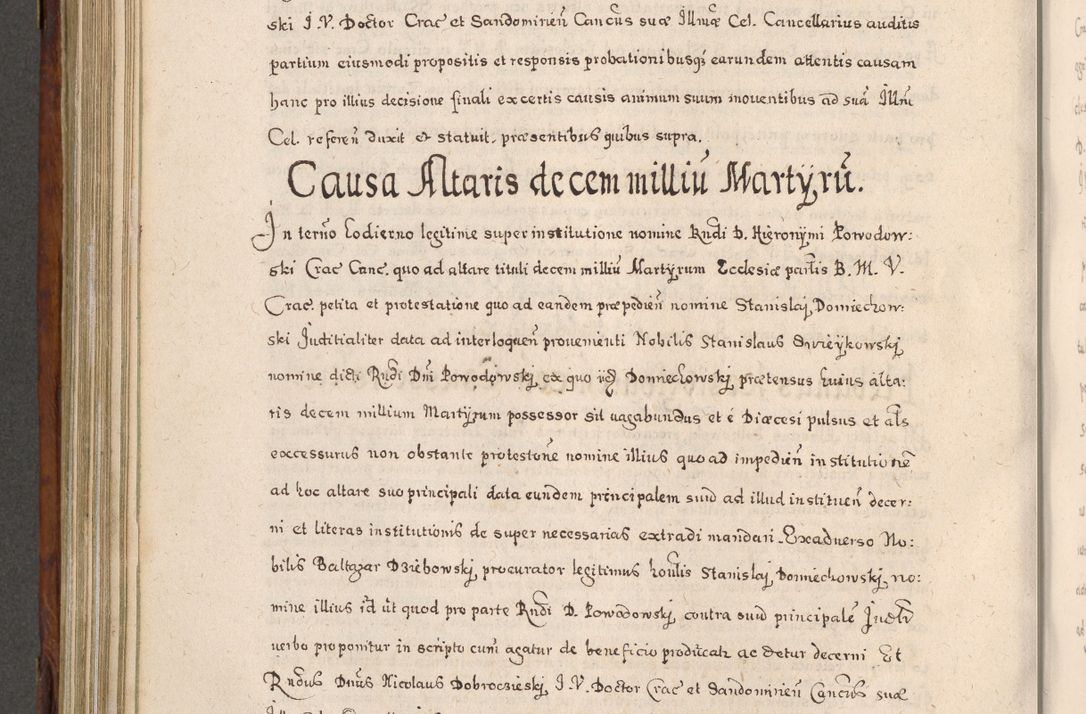 ski I. V. Doctor Crac et Sandominien̄ Cancūs suæ Illmæ Cel. Cancellarius auditis
partium eiusmodi propositis et responsis probationibusqȝ earundem attentis causam
hanc pro illius decisione finali ex certis causis animum suum moventibus ad suā Illm̄
Cel. referen̄ duxit et statuit, præsentibus quibus supra.
Causa Altaris decem milliū Martÿrū.
In termō hodierno legitime super institutione nomine Rndi D. Hieronÿmi Powodow:
ski Crac Canc. quo ad altare tituli decem milliū Martÿrum Ecclesiæ parlis B. M. V.
Crac. petita et protestatione quo ad eandem præpedien̄ nomine Stanislaj Domiechow:
ski Juditialiter data ad interloquen̄ provenienti Nobilis Stanislaus Swieÿkowskj
nomine dicti Rndi Dnī Powodowskj ex quo idē Domiechowskj prætensus huius alta:
ris decem millium Martÿrum possessor sit vagabundus et è Diœcesi pulsus et als
excessurus non obstante protestōne nomine illius quo ad impedien̄ institutionē
ad hoc altare suo principali data eundem principalem suū ad illud instituen̄ decer:
ni et literas institutionis de super necessarias extradi mandari. Ex adverso No:
bilis Baltazar Dziebowskj procurator legitimus honlis Stanislaj Domiechowskj no:
mine illius id ut quod pro parte Rndi D. Powodowskj contra suū principalē Judlr
verbo proponitur in scripto cum agatur de beneficio producatr ac detur decerni. Et
Rndus Dnus Nicolaus Dobroczieskj I. V. Doctor Crac et Sandominien̄ Cancūs suæ